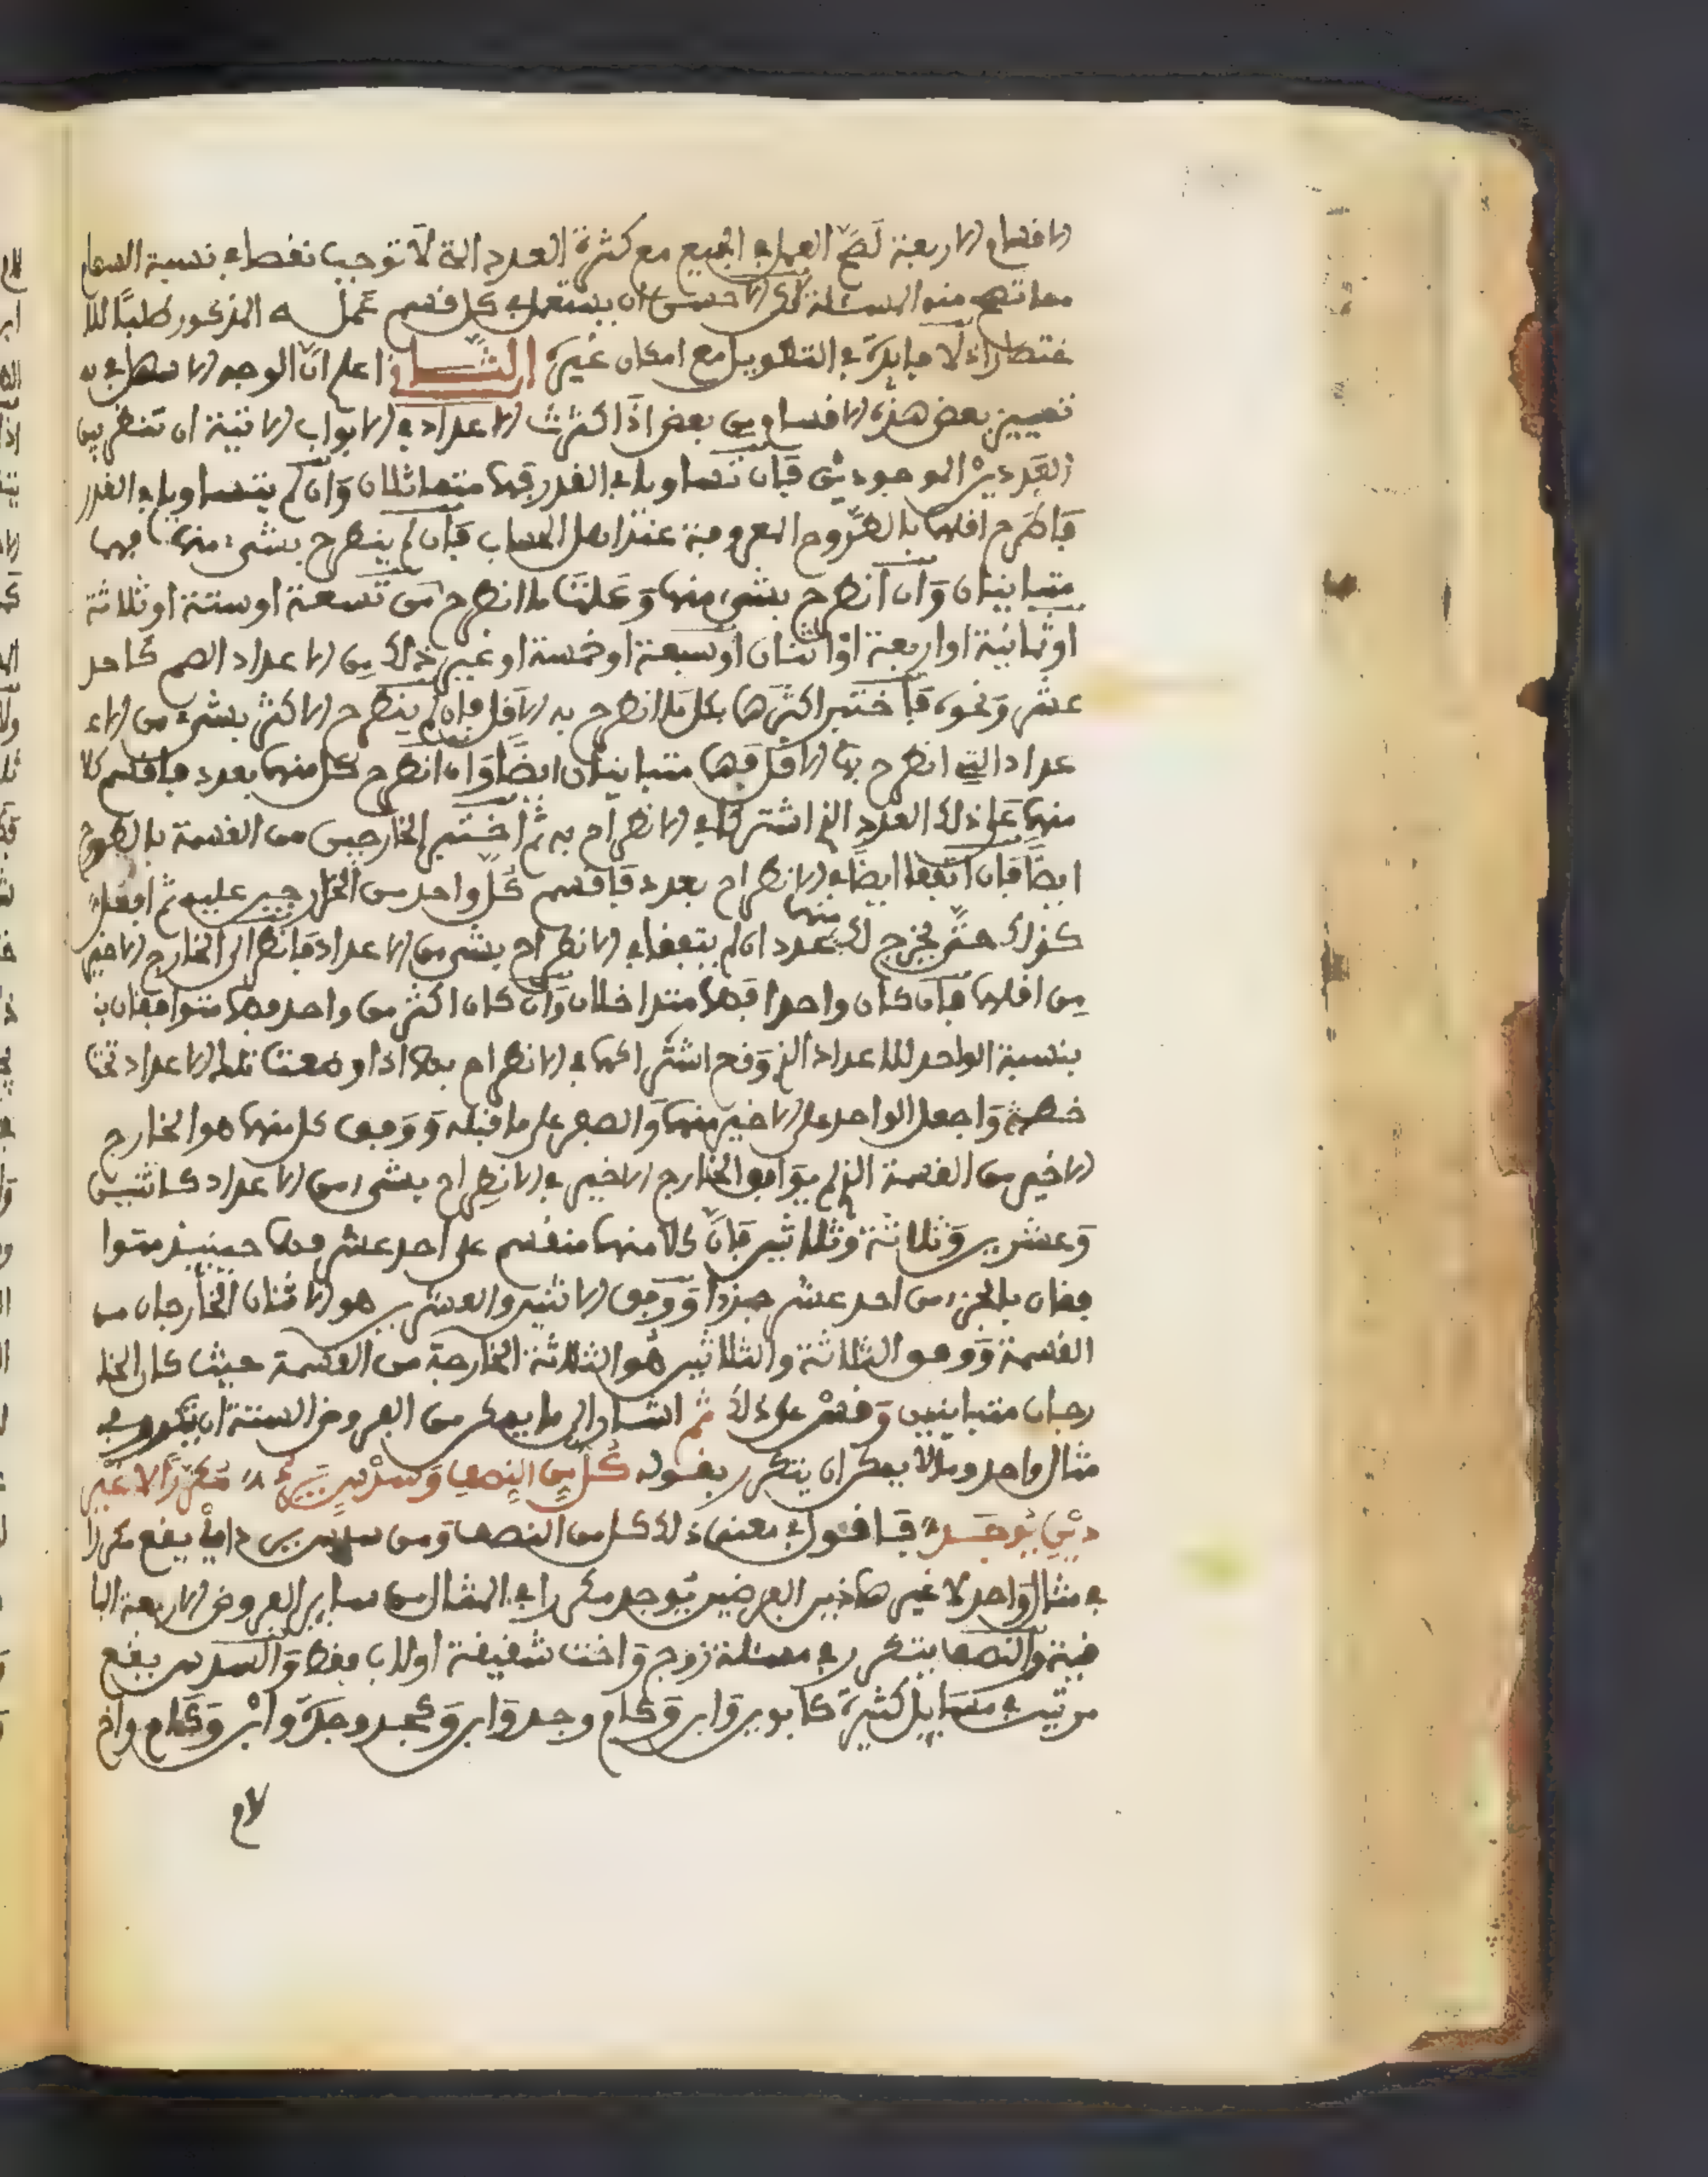 الاقسام الاربعة لصح العمل في الجميع مع كثرة العدد الا انه لا توجب نقصا في نسبة السهام
مما تصح منه المسئلة لكن الاحسن ان يستعمل في كل قسم عمله المذكور طلبا للا
ختصار اذ لا فايدة في التطويل مع امكان غيره الثاني اعلم ان الوجه الاسهل في
تمييز بعض هذه الاقسام من بعض اذا كثرت الاعداد في الابواب الاتية ان تنظر بين
العددين الموجودين فان تساويا في القدر فهما متماثلان وان لم يتساويا في القدر
فاطرح اقلهما بالطروح المعروفة عند اهل الحساب فان لم ينطرح بشيء منها فهما
متباينان وان انطرح بشيء منها وعلمت ما انطرح من تسعة او ستة او ثلاثة
او ثمانية او اربعة او اثنان او سبعة او خمسة او غير ذلك من الاعداد الصم كاحد
عشر ونحوه فاختبر اكثرها بكل ما انطرح به الاقل فان لم ينطرح الاكثر بشيء من الاع
عداد التي انطرح بها الاقل فهما متباينان ايضا وان انطرح كل منهما بعدد فاقسم كلا
منهما على ذلك العدد الذي اشتركا في الانطراح به ثم اختبر الخارجين من القسمة بالطروح
ايضا فان اتفقا ايضا في الانطراح بعدد فاقسم كل واحد من الخارجين عليه ثم افعل
كذلك حتى يخرج لك منهما عدد ان لم يتفقا في الانطراح بشيء من الاعداد فانظر الى الخارج الاخير
من اقلهما فان كان واحدا فهما متداخلان وان كان اكثر من واحد فهما متوافقان بـ
بنسبة الواحد للاعداد الذي وقع اشتراكهما في الانطراح بها اذا وضعت تلك الاعداد تحت
خط واجعل الواحد على الاخير منها والصفر على ما قبله ووفق كل منهما هو الخارج
الاخير من القسمة الذي لم يوافق الخارج الاخير في الانطراح بشيء من الاعداد كاثنين
وعشرين وثلاثة وثلاثين فان كلا منهما منقسم على احد عشر فهما حينئذ متوا
فقان بالجزء من احد عشر جزءا ووفق الاثنين والعشرين هو الاثنان الخارجان من
القسمة ووفق الثلاثة والثلاثين هو الثلاثة الخارجة من القسمة حيث كان الخا
رجان متباينين وقس على ذلك ثم اشار الى ما يمكن من الفروض الستة ان يتكرر في
مثال واحد وما لا يمكن ان يتكرر بقوله كل من النصف وسدس يرى مكررا لا غير
ذين يوجد فاقول في معنى ذلك كل من النصف ومن سدس يرى دايما يقع مكررا
في مثال واحد لا غير هاذين الفرضين يوجد مكررا في المثال من ساير الفروض الاربعة البا
قية والنصف يتكرر في مسئلة زوج واخت شقيقة او لاب فقط والسدس يقع
مرتين في مسايل كثيرة كابوين وابن وكام وجد وابن وكجد وجدة وابن وكام واخ
لام